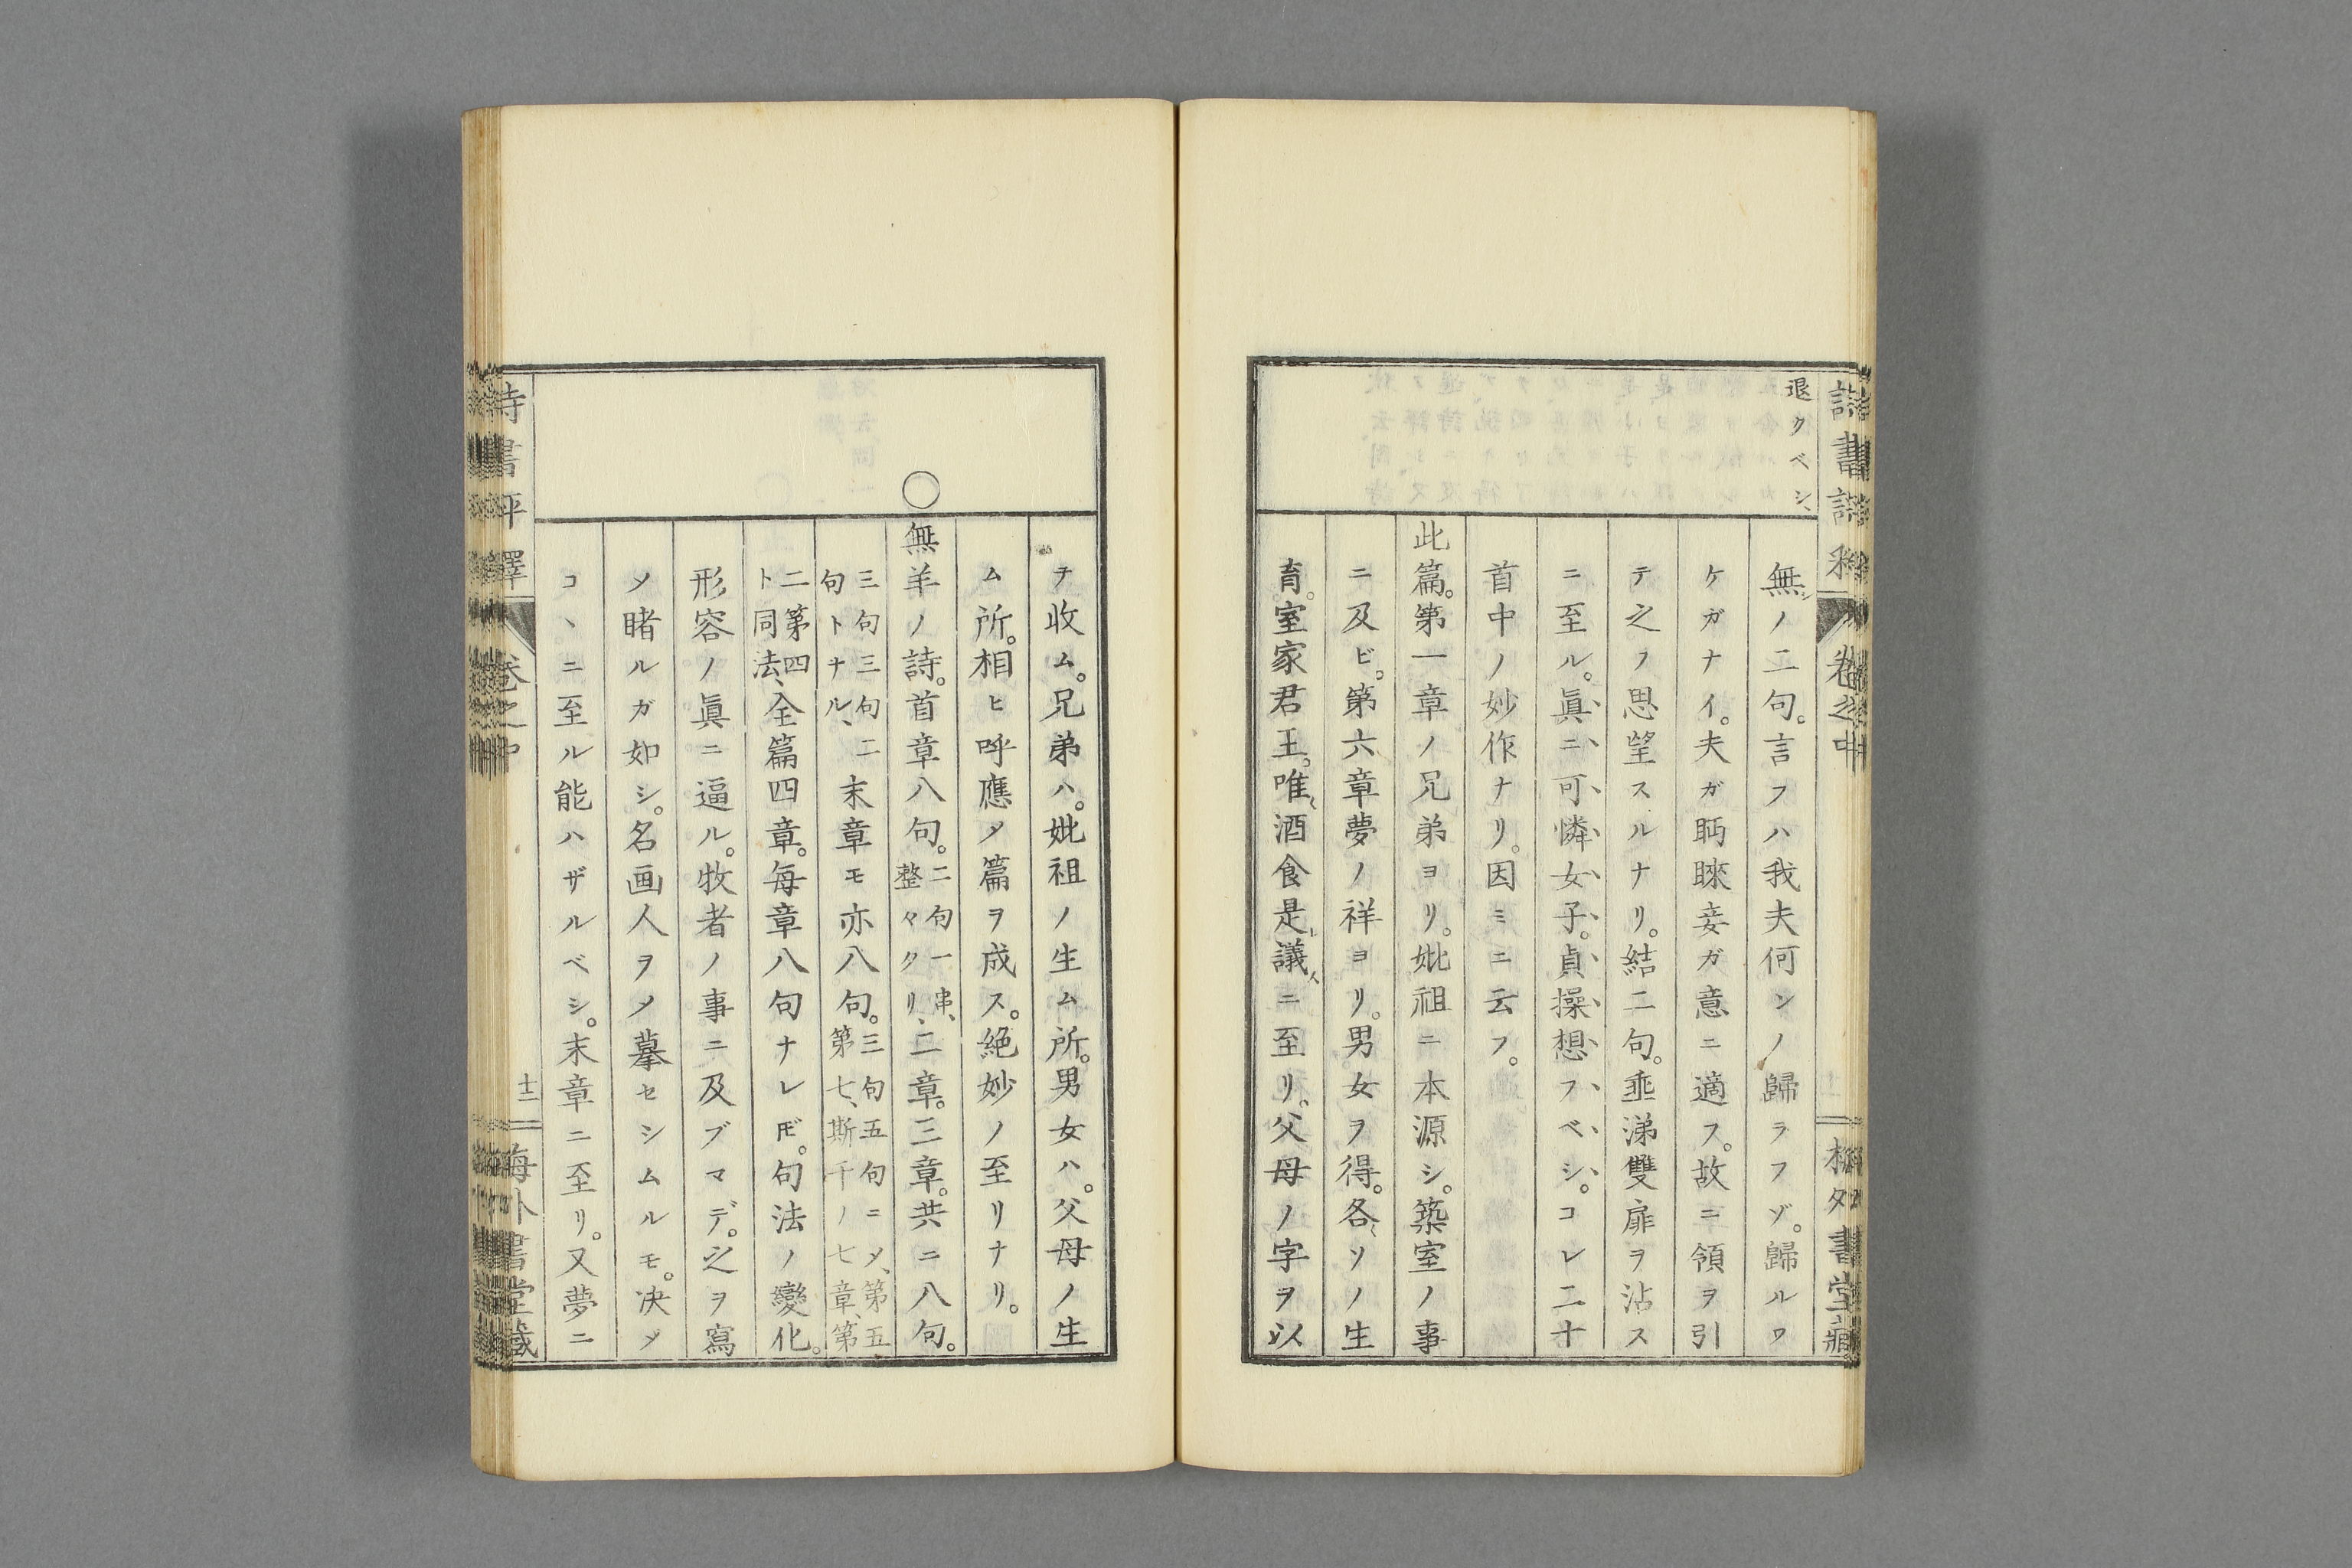 退クベシ、
無ノ二句。言フハ我夫何ンノ歸ラフゾ。歸ルワ
ケガナイ。夫ガ眄睞妾ガ意ニ適フ。故ニ領ヲ引
テ之ヲ思望スルナリ。結二句。垂涕雙扉ヲ沾ス
ニ至ル。眞ニ可憐女子。貞操想フベシ。コレ二十
首中ノ妙作ナリ。因ミニ云フ。
此篇。第一章ノ兄弟ヨリ。妣祖ニ本源シ。築室ノ事
ニ及ビ。第六章夢ノ祥ヨリ。男女ヲ得。各〻ソノ生
育。室家君王。唯酒食是議ニ至リ。父母ノ字ヲ以
詩書評釋
卷之中
梅外書堂藏
テ收ム。兄弟ハ。妣祖ノ生ム所。男女ハ。父母ノ生
ム所。相ヒ呼應メ篇ヲ成ス。絶妙ノ至リナリ。
○
無羊ノ詩。首章八句。二句一串、整々タリ、二章。三章。共ニ八句。
三句三句二句トナル、末章モ亦八句。三句五句ニメ、第五、第七、斯干ノ七章、第
二第四ト同法、全篇四章。毎章八句ナレ𪜈。句法ノ變化。
形容ノ眞ニ逼ル。牧者ノ事ニ及ブマデ。之ヲ寫
メ睹ルガ如シ。名画人ヲメ摹セシムルモ。决メ
コヽニ至ル能ハザルベシ。末章ニ至リ。又夢ニ
詩書評釋
卷之中
十二
梅外書堂藏